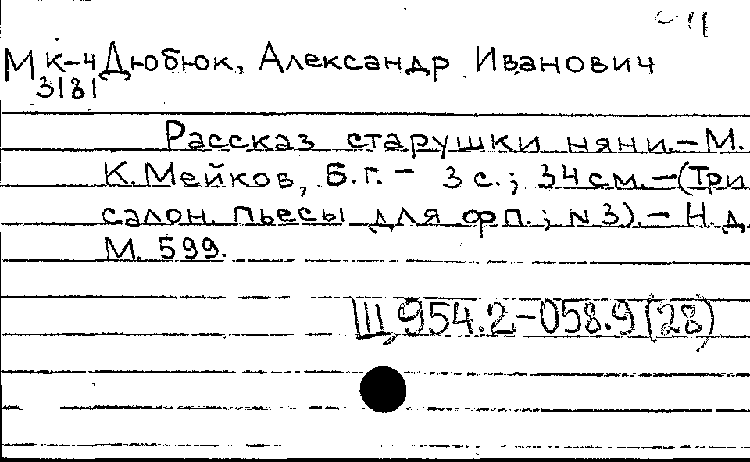 М К-4 Дюбюк, Александр Иванович
3181
Рассказ старушки няни.-М.
К.Мейков, Б.г. - 3 с.; 34 см.-(Три
салон. пьесы для фп.; N 3).- Н.д.
М. 599.
Щ954.2-058.9(28)